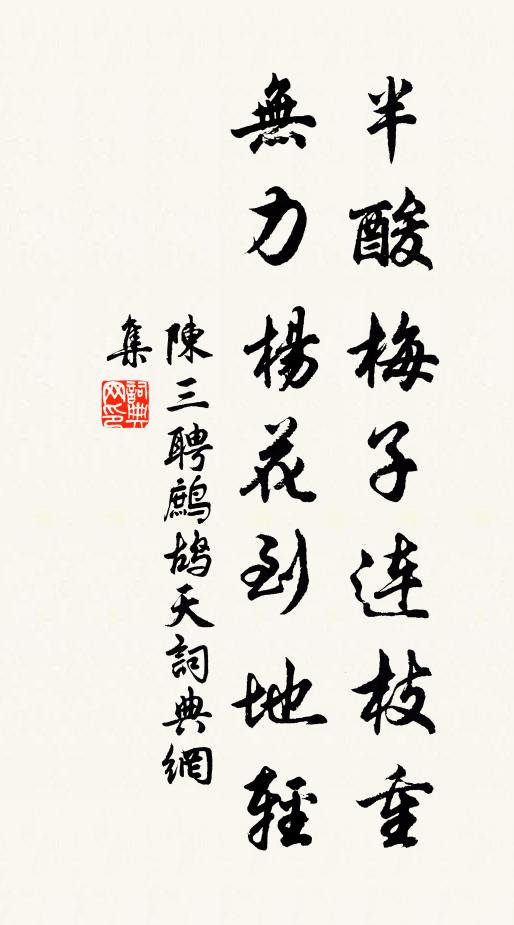 半酸梅子連枝重
無力楊花到地輕
陳三聘鷓鴣天詞典網
集
詞典網印